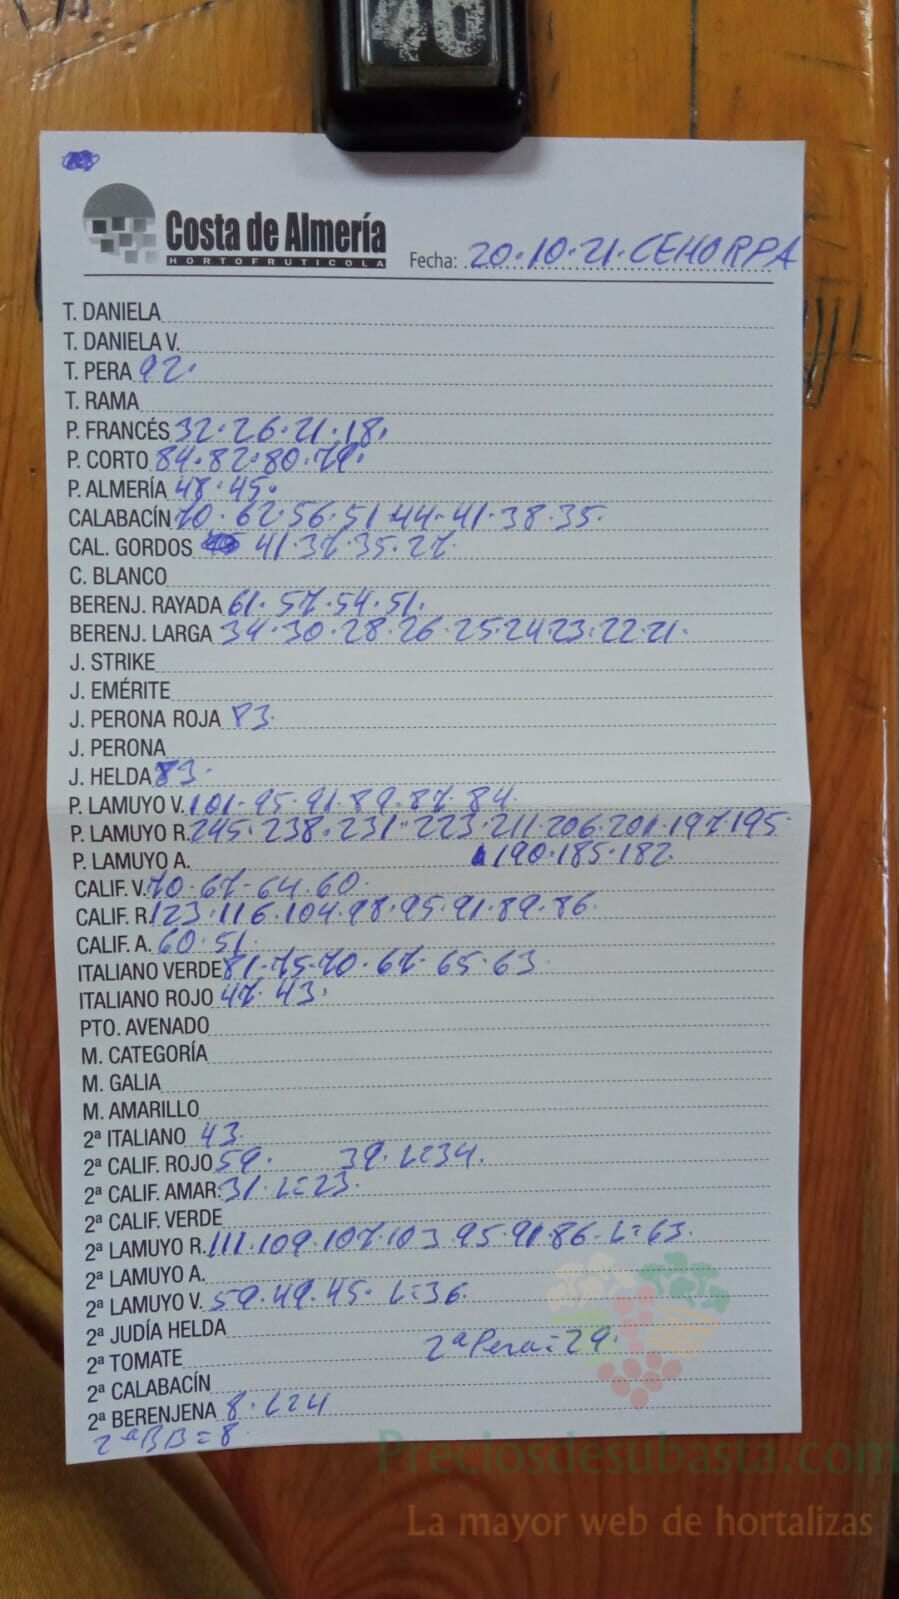 40
Costa de Almería
HORTOFRUTICOLA
Fecha: 20.10.21.CEHORPA
T. DANIELA
T. DANIELA V.
T. PERA 92.
T. RAMA
P. FRANCÉS 32.26.21.18.
P. CORTO 84.82.80.79.
P. ALMERÍA 48.45.
CALABACÍN 70.62.56.51.44.41.38.35.
CAL. GORDOS 41.37.35.27.
C. BLANCO
BERENJ. RAYADA 61.57.54.51.
BERENJ. LARGA 34.30.28.26.25.24.23.22.21.
J. STRIKE
J. EMÉRITE
J. PERONA ROJA 83.
J. PERONA
J. HELDA 83.
P. LAMUYO V. 101.95.91.89.87.84.
P. LAMUYO R. 245.238.231.223.211.206.201.197.195.
P. LAMUYO A. 190.185.182.
CALIF. V. 70.67.64.60.
CALIF. R. 123.116.104.98.95.91.89.86.
CALIF. A. 60.51.
ITALIANO VERDE 81.75.70.67.65.63.
ITALIANO ROJO 47.43.
PTO. AVENADO
M. CATEGORÍA
M. GALIA
M. AMARILLO
2ª ITALIANO 43.
2ª CALIF. ROJO 59. 39. L=34.
2ª CALIF. AMAR. 31. L=23.
2ª CALIF. VERDE
2ª LAMUYO R. 111.109.107.103 95.91.86. L=63.
2ª LAMUYO A.
2ª LAMUYO V. 59.49.45. L=36.
2ª JUDÍA HELDA
2ª TOMATE 2ª Pera=29.
2ª CALABACÍN
2ª BERENJENA 8. L=4
2ªBB=8
Preciosdesubasta.com
La mayor web de hortalizas